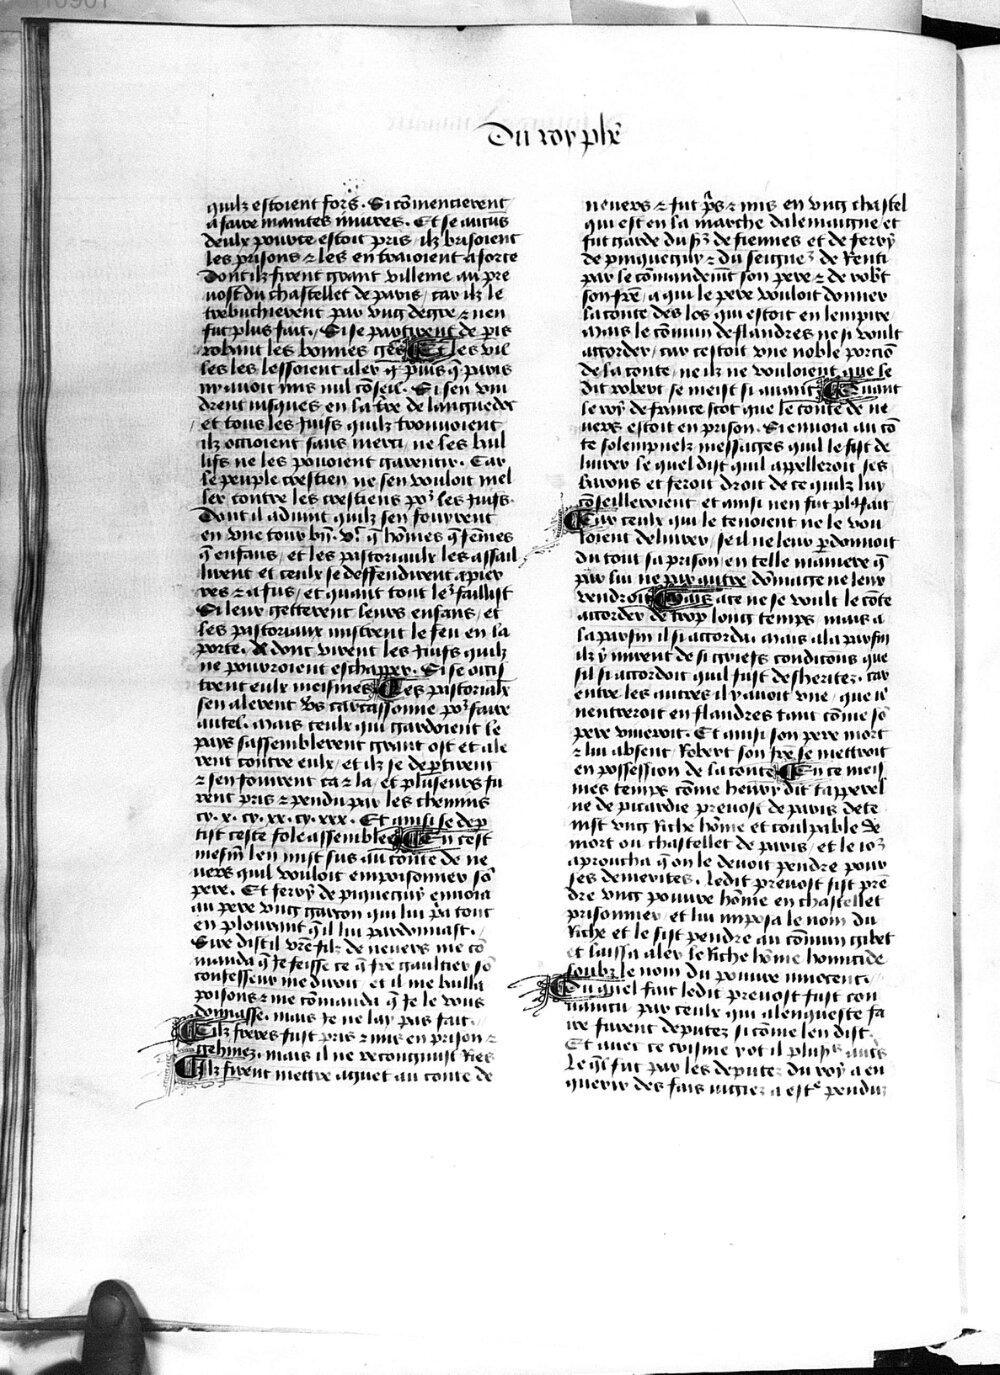 Du roy phẽ
quilz estoient fors. Si cõmencierent
a faire maintes iniures. Et se aucũs
deulx pouvre estoit pris / ilz brisoient
les prisons ⁊ les en traioient a force
Dont ilz firent grant villenie au pre
vost du chastellet de paris / car ilz le
trebuchierent par ung degre ⁊ nen
fut plus fait. Si se partirent de p̃is
robant les bonnes gẽs Et les vil
les les lessoient aler q̃ puis q̃ paris
ny avoit mis nul cõseil. Si sen vin
drent iusques en la t̃re de languedoc
et tous les Juifs quilz trouvoient
ilz occioient sans merci / ne les bail
lifs ne les povoient garentir. Car
le peuple crestien ne sen vouloit mel
ler contre les crestiens poꝛ les Juifs.
Dont il advint quilz sen fouirent
en une tour biẽ. vᶜ. q̃ hõmes q̃ fẽmes
q̃ enfans / et les pastoriaulx les assail
lirent et ceulx se deffendirent a pier
res ⁊ a fus / et quant tout leᵉ faillist
Si leur getterent leurs enfans / et
les pastoriaux mistrent le feu en la
porte. ⁊ dont virent les Juifs quilz
ne pourroient eschapper. Si se occis
trent eulx meismes Les pastoriaux
sen alerent vs̃ carcassonne poꝛ faire
autel. mais ceulx qui gardoient le
pays sassemblerent grant ost et ale
rent contre eulx / et ilz se dep̱tirent
⁊ sen fouirent ca ⁊ la / et plusieurs fu
rent pris ⁊ pendu par les chemins
cy. x. cy. xx. cy. xxx. Et ainsi se dep̱
tist ceste fole assemblee En cest
mesm̃ len mist sus au conte de ne
vers quil vouloit emprisonner sõ
pere. Et ferry de piquegny envoia
au pere ung garcon qui lui pa tout
en plourant q̃l lui pardonnast.
Sire dist il vr̃e filz de nevers me cõ
manda q̃ Je feisse ce q̃ fr̃e gaultier sõ
confesseur me diroit et il me bailla
poisons ⁊ me cõmanda q̃ Je le vous
donnasse. mais Je ne lay pas fait.
Cilz freres fust pris ⁊ mis en prison ⁊
gehinez. mais il ne recongnust Riẽs
Cilz firent mettre aguet au conte de
nevers ⁊ fut p̃s ⁊ mis en ung chastel
qui est en la marche dalemaigne et
fut garde du sʳ de fiennes et de ferry
de pinquegny ⁊ du seigneʳ de Renti
par le cõmandemẽt son pere ⁊ de rob̃t
son fre̾ / a qui le pere vouloit donner
la conte des los qui estoit en lempire
Mais le cõmun de flandres ne si voult
accorder / car cestoit une noble porciõ
de la conte / ne ilz ne vouloient que le
dit robert se meist si avant Quant
le roy de france scot que le conte de ne
vers estoit en prison. Si envoia au cõ
te solempnelz messages quil le fist de
livrer le quel dist quil appelleroit ses
barons et feroit droit de ce quilz luy
cõseilleroient et ainsi nen fut plꝰ fait
Car ceulx qui le tenoient ne le vou
loient delivrer / se il ne leur p̱donnoit
du tout sa prison / en telle maniere q̃
par lui ne par autre dõmage ne leur
vendroit Mais a ce ne se voult le cõte
accorder de trop long temps / mais a
la parfin il si accorda. Mais a la parfin
ilz y mirent de si griefs condicõns que
sil si accordoit quil fust desheritez. car
entre les autres il y avoit une / que il
nentreroit en flandres tant cõme sõ
pere viveroit. Et ainsi son pere mort
⁊ lui absent / Robert son fre̾ se mettroit
en possession de la conte En ce meis
mes temps cõme henry dit tapperel
ne de picardie prevost de paris dete
nist ung Riche hõme et coulpable de
mort ou chastellet de paris / et le ioꝛ
aproucha q̃ on le devoit pendre pour
ses demerites. Ledit prevost fist prẽ
dre ung pouvre hõme en chastellet
prisonnier / et lui imposa le nom du
Riche et le fist pendre au cõmun gibet
et laissa aler le Riche hõme homicide
soubz le nom du pouvre innocent.
Du quel fait ledit prevost fust con
vaincu par ceulx qui a lenqueste fa
ire furent deputez si cõme len dist.
Le q̃l fut par les deputez du roy a en
querir des fais iugiez a estᵉ penduz